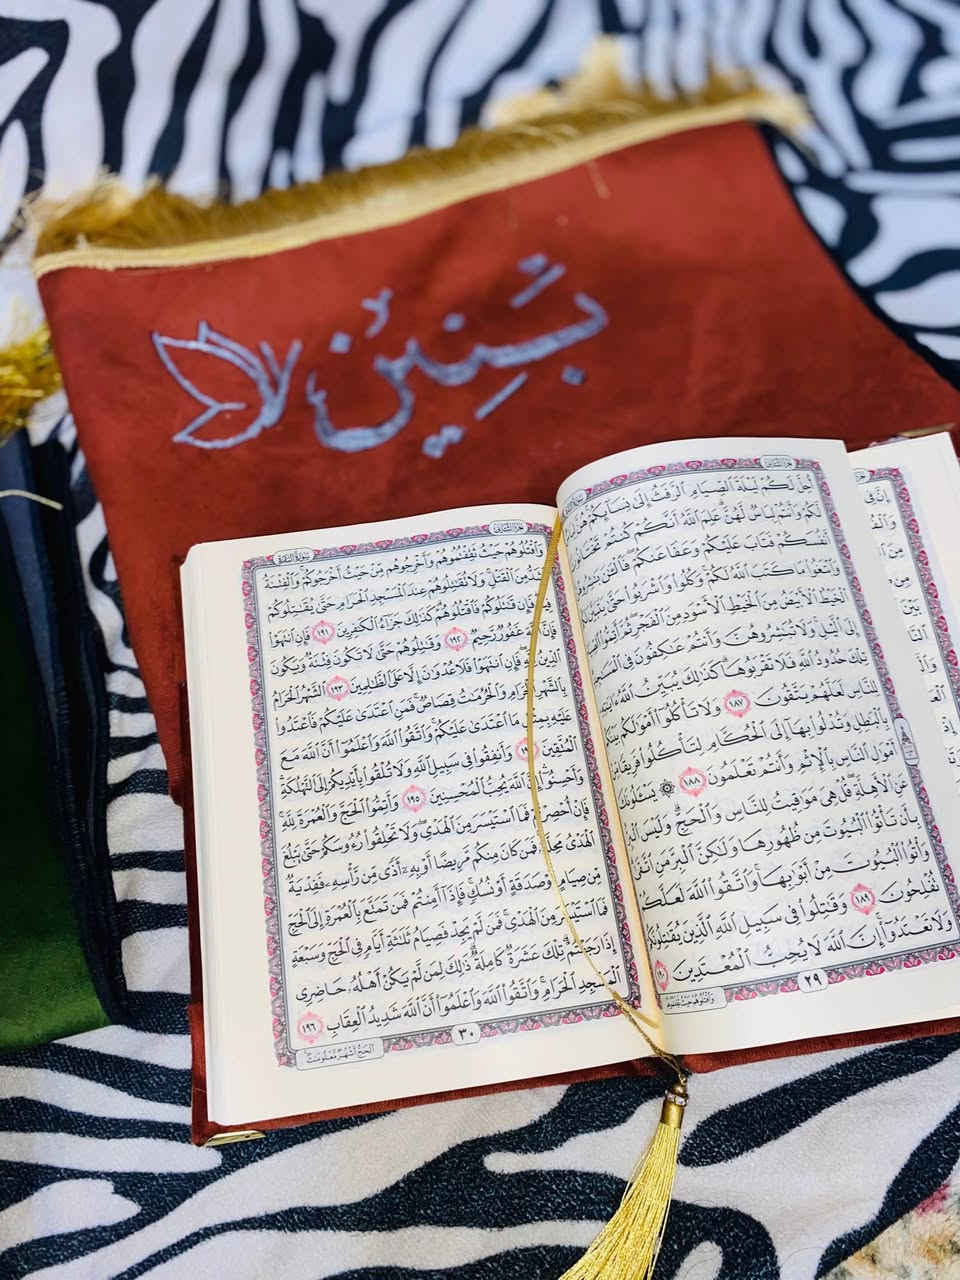 بَنِين
أُحِلَّ لَكُمْ لَيْلَةَ الصِّيَامِ الرَّفَثُ إِلَى نِسَائِكُمْ هُنَّ
لَكُمْ وَأَنتُمْ لِبَاسٌ لَّهُنَّ عَلِمَ اللَّهُ أَنَّكُمْ كُنتُمْ
أَنفُسَكُمْ فَتَابَ عَلَيْكُمْ وَعَفَا عَنكُمْ فَالْآنَ
وَابْتَغُوا مَا كَتَبَ اللَّهُ لَكُمْ وَكُلُوا وَاشْرَبُوا حَتَّى
الْخَيْطُ الْأَبْيَضُ مِنَ الْخَيْطِ الْأَسْوَدِ مِنَ الْفَجْرِ ثُمَّ أَتِمُّوا
إِلَى اللَّيْلِ وَلَا تُبَاشِرُوهُنَّ وَأَنتُمْ عَاكِفُونَ فِي
تِلْكَ حُدُودُ اللَّهِ فَلَا تَقْرَبُوهَا كَذَلِكَ يُبَيِّنُ اللَّهُ
لِلنَّاسِ لَعَلَّهُمْ يَتَّقُونَ ١٨٧ وَلَا تَأْكُلُوا أَمْوَالَكُم
بِالْبَاطِلِ وَتُدْلُوا بِهَا إِلَى الْحُكَّامِ لِتَأْكُلُوا فَرِيقًا
أَمْوَالِ النَّاسِ بِالْإِثْمِ وَأَنتُمْ تَعْلَمُونَ ١٨٨ يَسْأَلُونَكَ
عَنِ الْأَهِلَّةِ قُلْ هِيَ مَوَاقِيتُ لِلنَّاسِ وَالْحَجِّ وَلَيْسَ
بِأَن تَأْتُوا الْبُيُوتَ مِن ظُهُورِهَا وَلَكِنَّ الْبِرَّ مَنِ
وَأْتُوا الْبُيُوتَ مِنْ أَبْوَابِهَا وَاتَّقُوا اللَّهَ لَعَلَّكُمْ
تُفْلِحُونَ ١٨٩ وَقَاتِلُوا فِي سَبِيلِ اللَّهِ الَّذِينَ يُقَاتِلُونَكُمْ
وَلَا تَعْتَدُوا إِنَّ اللَّهَ لَا يُحِبُّ الْمُعْتَدِينَ ١٩٠
٢٩
وَاقْتُلُوهُمْ حَيْثُ
سُورَةُ الْبَقَرَةِ
وَاقْتُلُوهُمْ حَيْثُ ثَقِفْتُمُوهُمْ وَأَخْرِجُوهُم مِّنْ حَيْثُ أَخْرَجُوكُمْ وَالْفِتْنَةُ
أَشَدُّ مِنَ الْقَتْلِ وَلَا تُقَاتِلُوهُمْ عِندَ الْمَسْجِدِ الْحَرَامِ حَتَّى يُقَاتِلُوكُمْ
فِيهِ فَإِن قَاتَلُوكُمْ فَاقْتُلُوهُمْ كَذَلِكَ جَزَاءُ الْكَافِرِينَ ١٩١ فَإِنِ انتَهَوْا
فَإِنَّ اللَّهَ غَفُورٌ رَّحِيمٌ ١٩٢ وَقَاتِلُوهُمْ حَتَّى لَا تَكُونَ فِتْنَةٌ وَيَكُونَ
الدِّينُ لِلَّهِ فَإِنِ انتَهَوْا فَلَا عُدْوَانَ إِلَّا عَلَى الظَّالِمِينَ ١٩٣ الشَّهْرُ الْحَرَامُ
بِالشَّهْرِ الْحَرَامِ وَالْحُرُمَاتُ قِصَاصٌ فَمَنِ اعْتَدَى عَلَيْكُمْ فَاعْتَدُوا
عَلَيْهِ بِمِثْلِ مَا اعْتَدَى عَلَيْكُمْ وَاتَّقُوا اللَّهَ وَاعْلَمُوا أَنَّ اللَّهَ مَعَ
الْمُتَّقِينَ وَأَنفِقُوا فِي سَبِيلِ اللَّهِ وَلَا تُلْقُوا بِأَيْدِيكُمْ إِلَى التَّهْلُكَةِ
وَأَحْسِنُوا إِنَّ اللَّهَ يُحِبُّ الْمُحْسِنِينَ ١٩٥ وَأَتِمُّوا الْحَجَّ وَالْعُمْرَةَ لِلَّهِ
فَإِنْ أُحْصِرْتُمْ فَمَا اسْتَيْسَرَ مِنَ الْهَدْيِ وَلَا تَحْلِقُوا رُءُوسَكُمْ حَتَّى يَبْلُغَ
الْهَدْيُ مَحِلَّهُ فَمَن كَانَ مِنكُم مَّرِيضًا أَوْ بِهِ أَذًى مِّن رَّأْسِهِ فَفِدْيَةٌ
مِّن صِيَامٍ أَوْ صَدَقَةٍ أَوْ نُسُكٍ فَإِذَا أَمِنتُمْ فَمَن تَمَتَّعَ بِالْعُمْرَةِ إِلَى الْحَجِّ
فَمَا اسْتَيْسَرَ مِنَ الْهَدْيِ فَمَن لَّمْ يَجِدْ فَصِيَامُ ثَلَاثَةِ أَيَّامٍ فِي الْحَجِّ وَسَبْعَةٍ
إِذَا رَجَعْتُمْ تِلْكَ عَشَرَةٌ كَامِلَةٌ ذَلِكَ لِمَن لَّمْ يَكُنْ أَهْلُهُ حَاضِرِي
الْمَسْجِدِ الْحَرَامِ وَاتَّقُوا اللَّهَ وَاعْلَمُوا أَنَّ اللَّهَ شَدِيدُ الْعِقَابِ ١٩٦
٣٠
الْحَجُّ أَشْهُرٌ مَّعْلُومَاتٌ